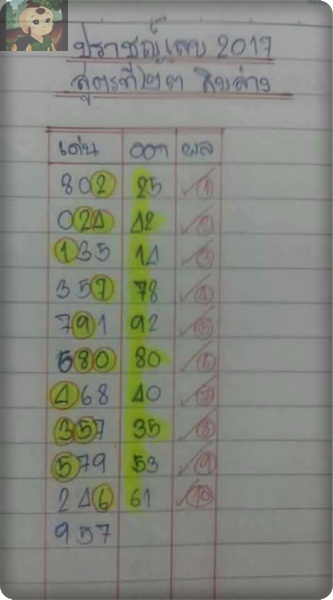 ปราชญ์เลข 2017
สูตรที่ ๒๓ สิบล่าง
เด่น ออก ผล
802 25 ✓ 1
024 42 ✓ 2
135 14 ✓ 3
357 78 ✓ 4
791 92 ✓ 5
580 80 ✓ 6
468 40 ✓ 7
357 35 ✓ 8
579 53 ✓ 9
246 61 ✓ 10
957